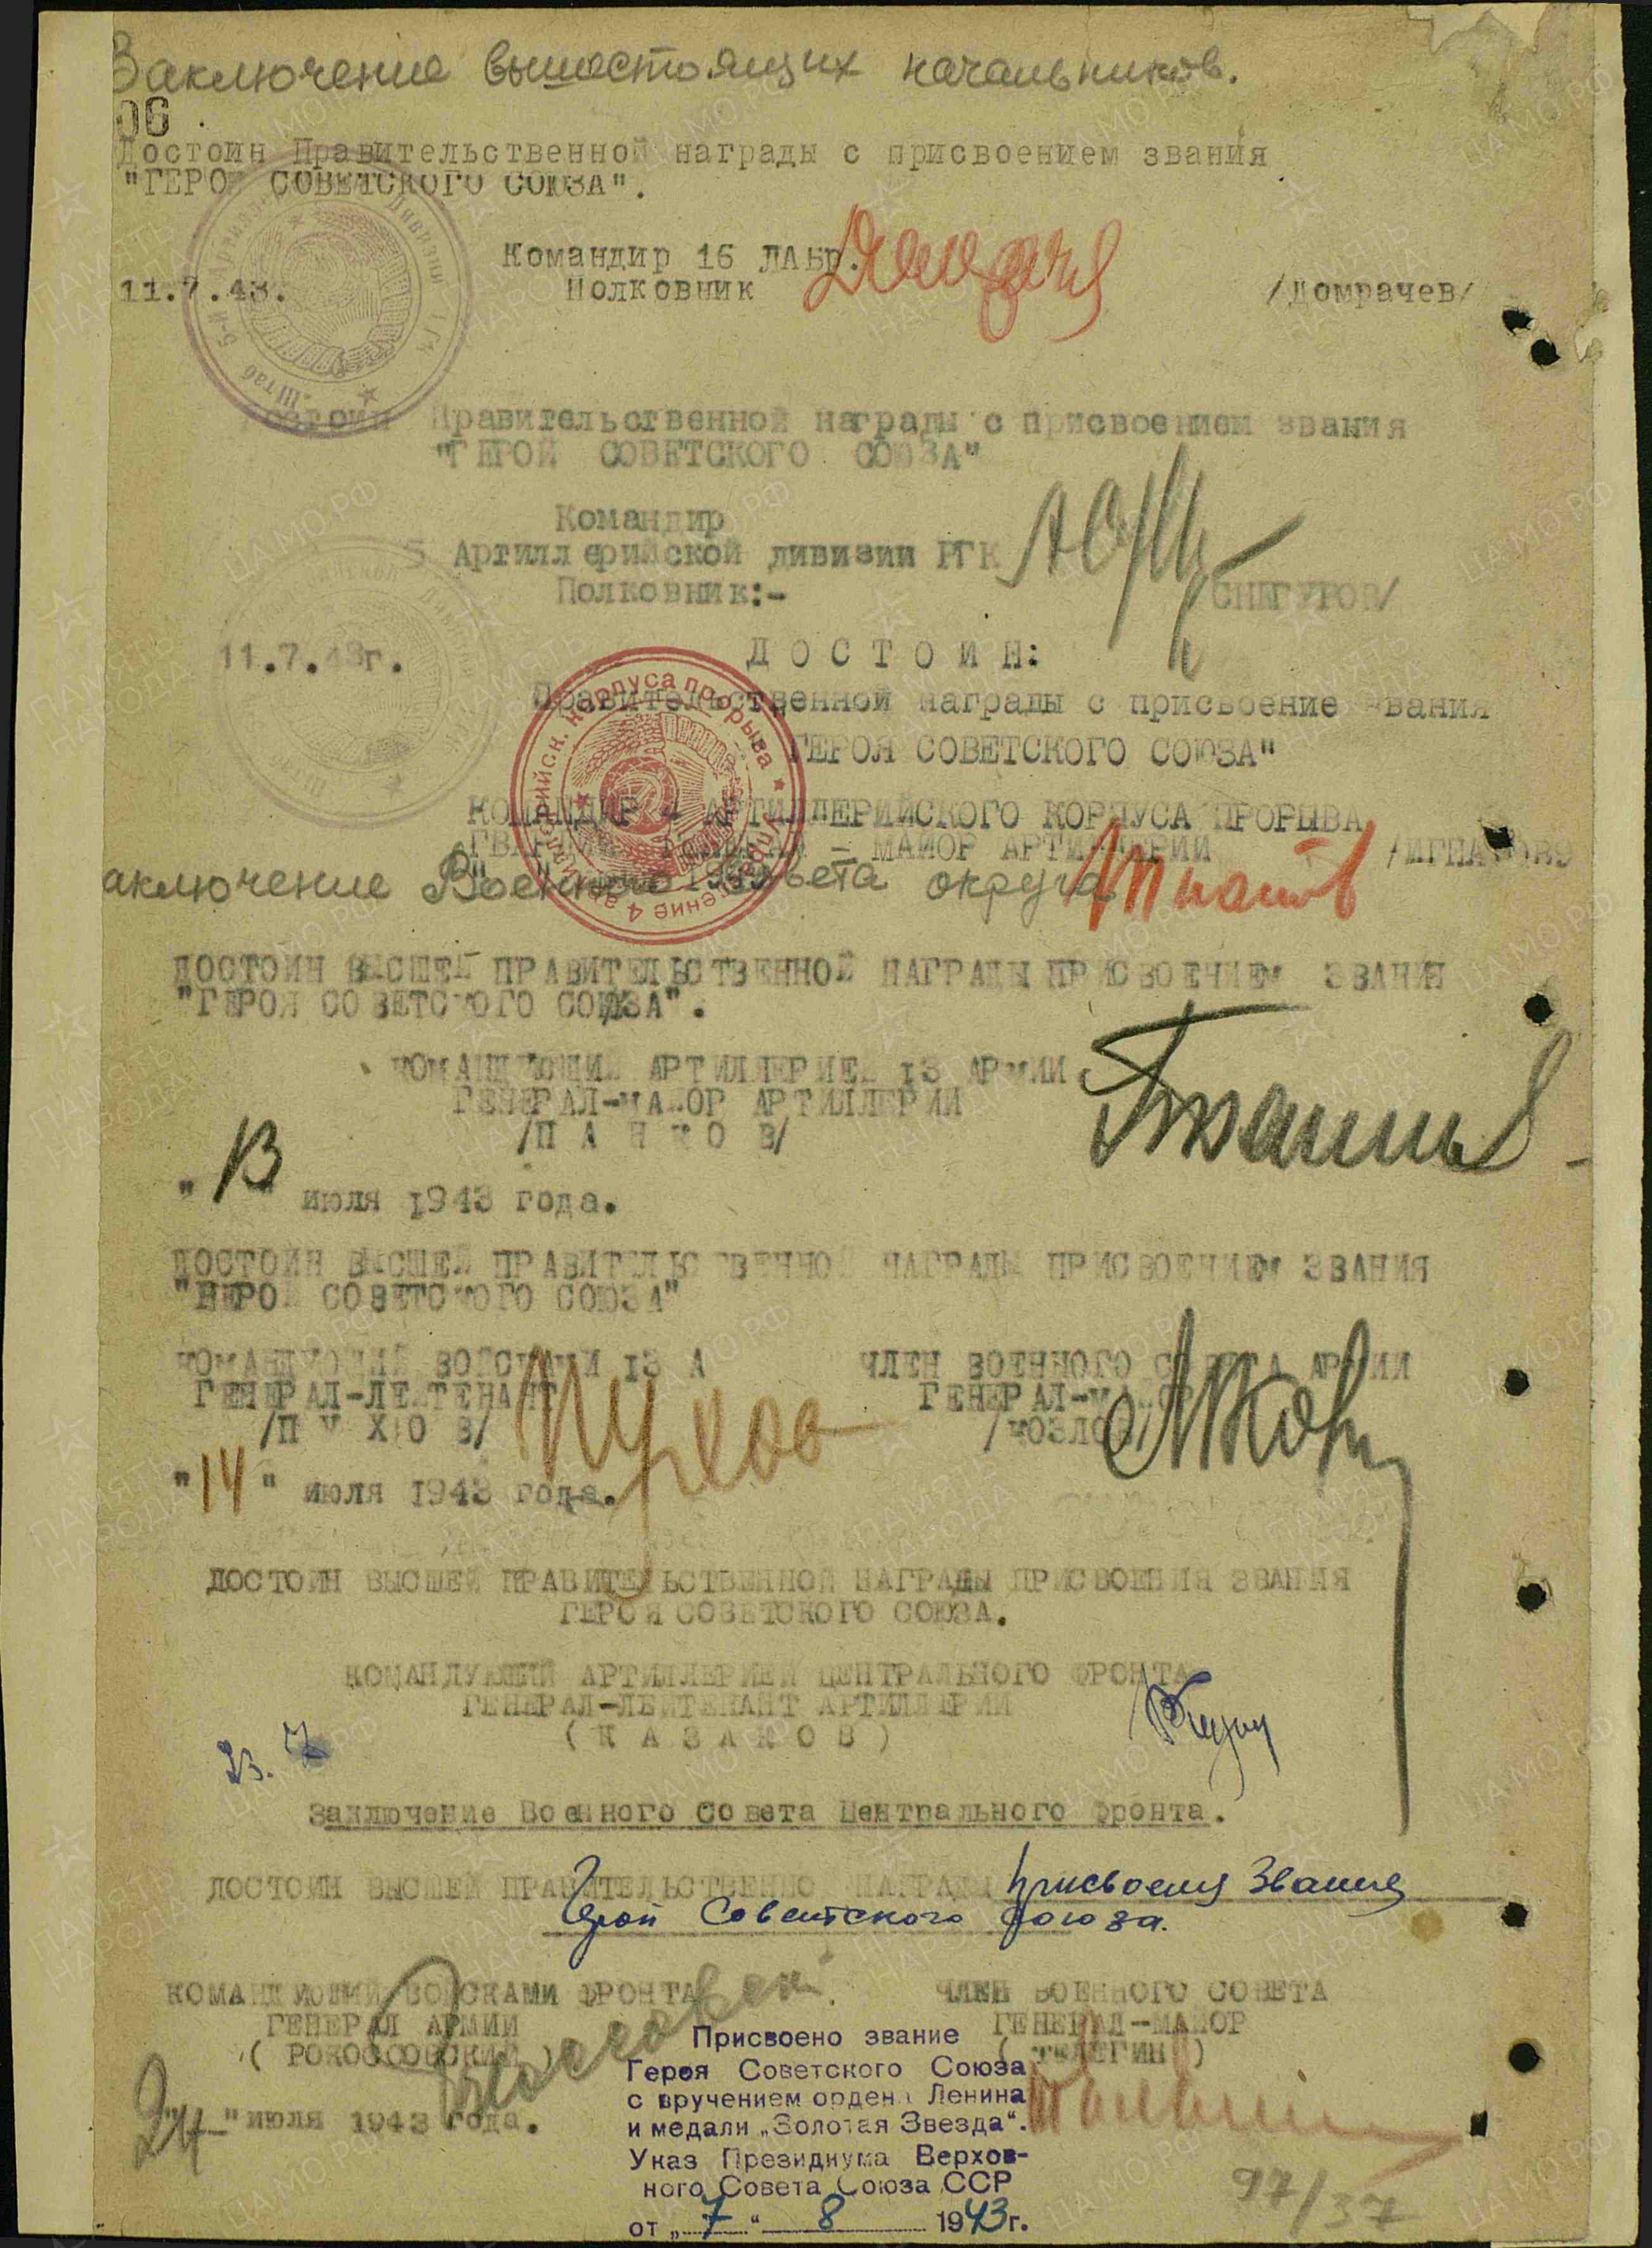 Заключение вышестоящих начальников.
06
Достоин Правительственной награды с присвоением звания
"ГЕРОЙ СОВЕТСКОГО СОЮЗА".
Командир 16 ЛАБр.
11.7.43. Полковник /Домрачев/
Достоин Правительственной награды с присвоением звания
"ГЕРОЙ СОВЕТСКОГО СОЮЗА"
Командир
5 Артиллерийской дивизии РГК
Полковник:- /СНЕГУРОВ/
11.7.43г.
ДОСТОИН:
Правительственной награды с присвоение звания
ГЕРОЯ СОВЕТСКОГО СОЮЗА"
КОМАНДИР 4 АРТИЛЛЕРИЙСКОГО КОРПУСА ПРОРЫВА
ГВАРДИИ - МАЙОР АРТИЛЛЕРИИ /ИГНАТОВ
аключение Военного Совета округа
ДОСТОИН ВЫСШЕЙ ПРАВИТЕЛЬСТВЕННОЙ НАГРАДЫ ПРИСВОЕНИЕМ ЗВАНИЯ
"ГЕРОЯ СОВЕТСКОГО СОЮЗА".
КОМАНДУЮЩИЙ АРТИЛЛЕРИЕЙ 13 АРМИИ
ГЕНЕРАЛ-МАЙОР АРТИЛЛЕРИИ
/ПАНКОВ/
"13" июля 1943 года.
ДОСТОИН ВЫСШЕЙ ПРАВИТЕЛЬСТВЕННОЙ НАГРАДЫ ПРИСВОЕНИЕМ ЗВАНИЯ
"ГЕРОЙ СОВЕТСКОГО СОЮЗА"
КОМАНДУЮЩИЙ ВОЙСКАМИ 13 А ЧЛЕН ВОЕННОГО СОВЕТА АРМИИ
ГЕНЕРАЛ-ЛЕЙТЕНАНТ ГЕНЕРАЛ-МАЙОР
/ПУХОВ/ Пухов /КОЗЛОВ/
"14" июля 1943 года.
ДОСТОИН ВЫСШЕЙ ПРАВИТЕЛЬСТВЕННОЙ НАГРАДЫ ПРИСВОЕНИЯ ЗВАНИЯ
ГЕРОЯ СОВЕТСКОГО СОЮЗА.
КОМАНДУЮЩИЙ АРТИЛЛЕРИЕЙ ЦЕНТРАЛЬНОГО ФРОНТА
ГЕНЕРАЛ-ЛЕЙТЕНАНТ АРТИЛЛЕРИИ
(КАЗАКОВ)
23. 7
Заключение Военного Совета Центрального фронта.
ДОСТОИН ВЫСШЕЙ ПРАВИТЕЛЬСТВЕННО НАГРАДЫ присвоения Звания
Герой Советского Союза.
КОМАНДУЮЩИЙ ВОЙСКАМИ ФРОНТА ЧЛЕН ВОЕННОГО СОВЕТА
ГЕНЕРАЛ АРМИИ ГЕНЕРАЛ-МАЙОР
(РОКОССОВСКИЙ) (ТЕЛЕГИН)
24 "июля 1943 года.
Присвоено звание
Героя Советского Союза
с вручением ордена Ленина
и медали „Золотая Звезда“.
Указ Президиума Верхов-
ного Совета Союза ССР
от „7“ 8 1943г.
97/37